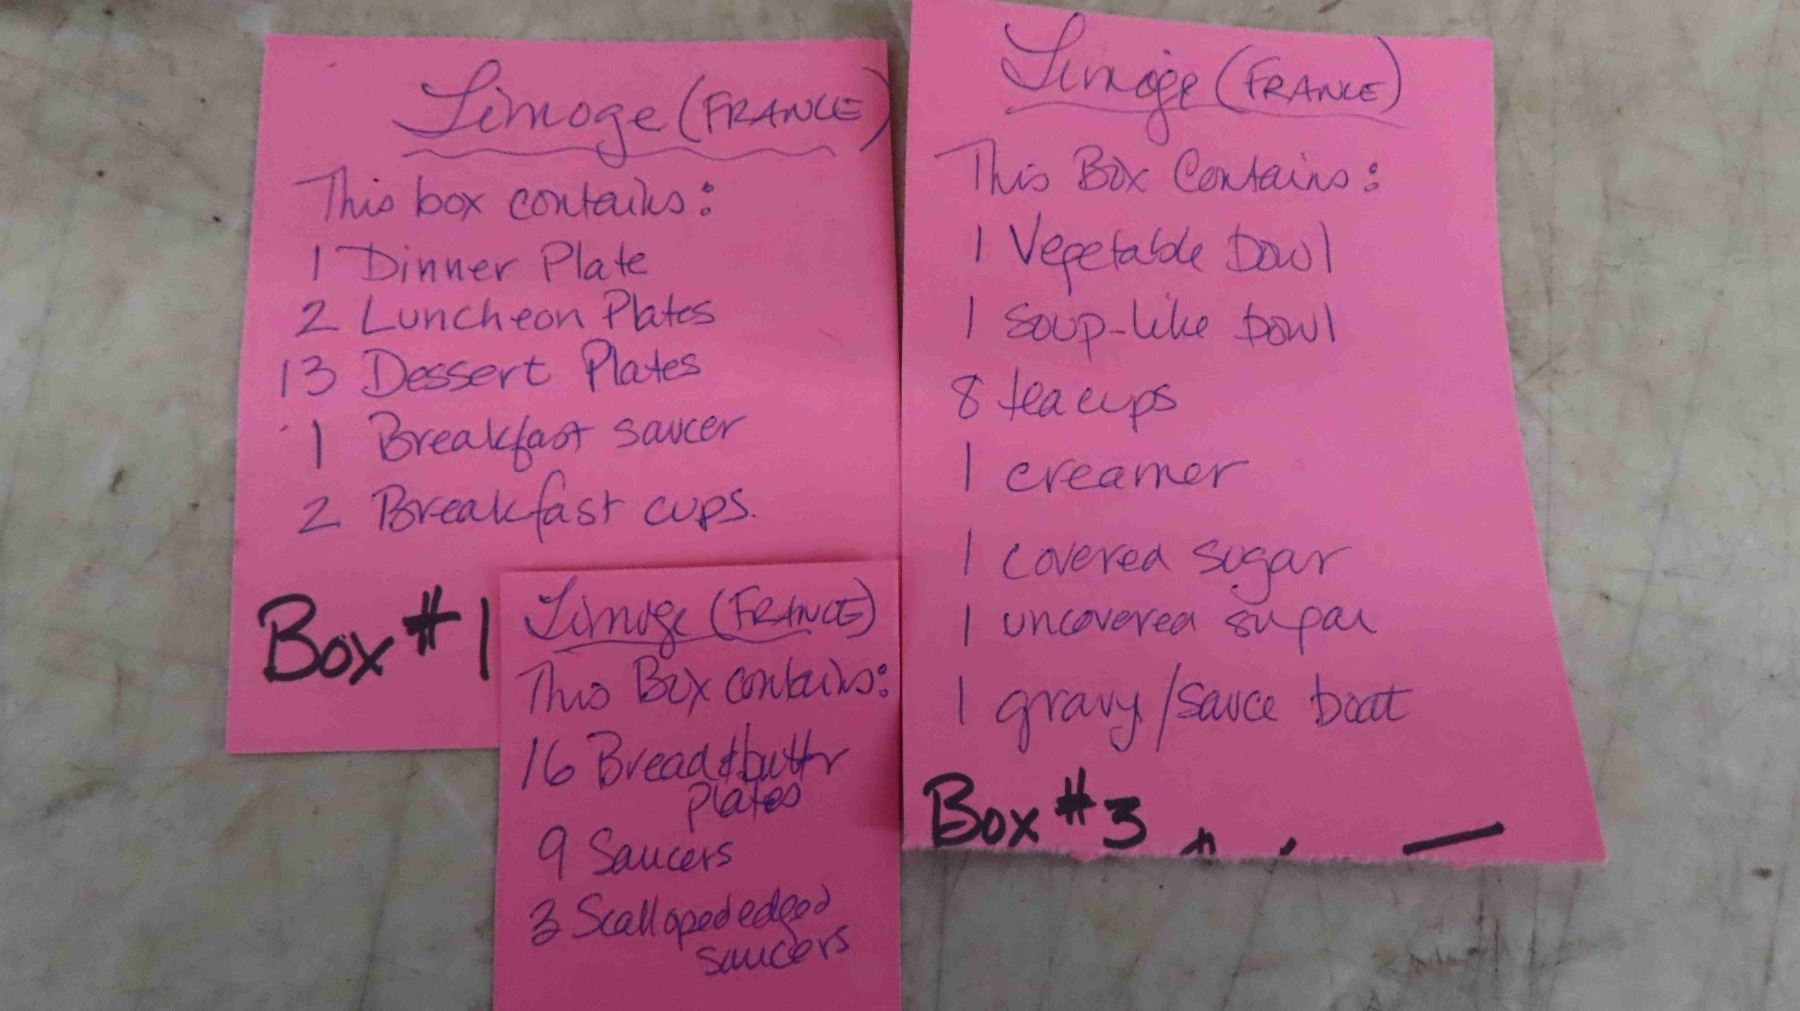 Limoge (FRANCE)
This box contains:
1 Dinner Plate
2 Luncheon Plates
13 Dessert Plates
1 Breakfast saucer
2 Breakfast cups.
Box #1
Limoge (FRANCE)
This Box contains:
16 Bread & butter
plates
9 Saucers
3 Scalloped edged
saucers
Limoge (FRANCE)
This Box Contains:
1 Vegetable bowl
1 soup-like bowl
8 teacups
1 creamer
1 covered sugar
1 uncovered sugar
1 gravy/sauce boat
Box #3